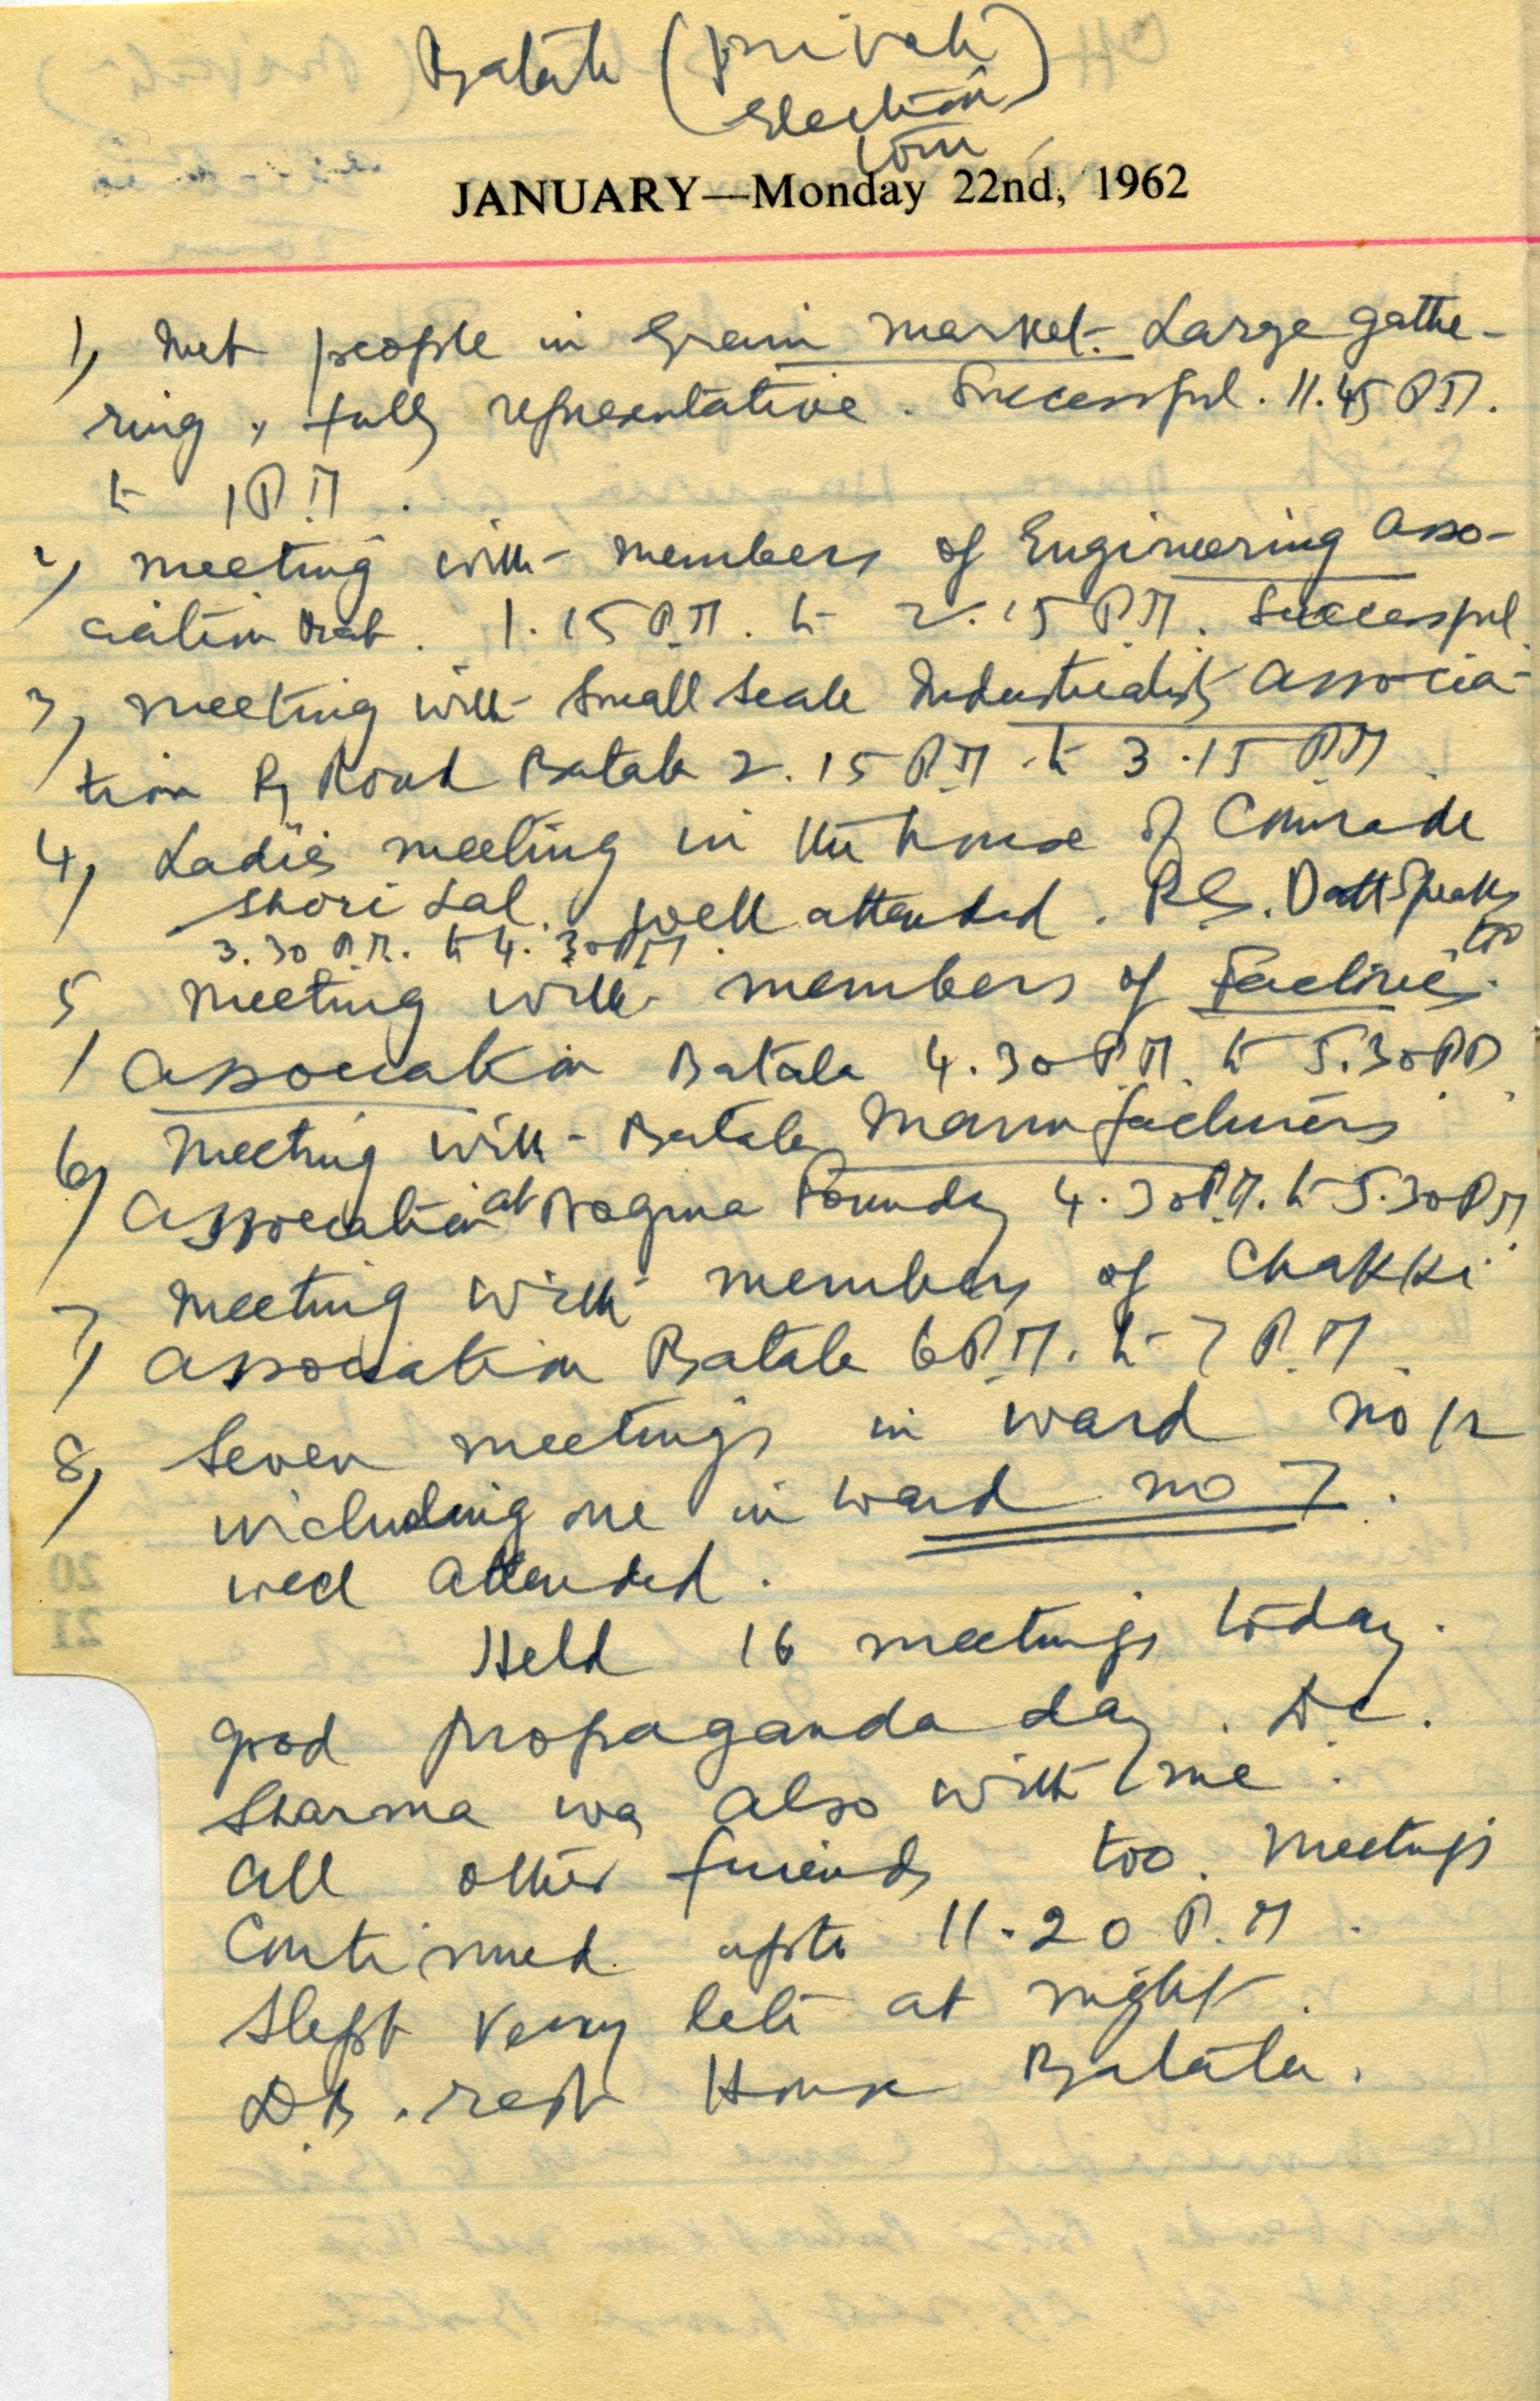 Batala (private
Election)
Tour
JANUARY—Monday 22nd, 1962
1) Met people in Grain market. Large gathe-
ring, fully representative. Successful. 11.45 P.M.
to 1 P.M.
2) meeting with members of Engineering Asso-
ciation 1.15 P.M. to 2.15 P.M. Successful.
3) meeting with Small Scale Industrialists Associa-
tion Road Batala 2.15 P.M. to 3.15 P.M.
4) Ladies meeting in the house of Comrade
Shori Lal. well attended. Datt Speaks
too.
3.30 P.M. to 4.30 P.M.
5) Meeting with members of Factories
Association Batala 4.30 P.M. to 5.30 P.M.
6) Meeting with Batala Manufacturers
Association at Foundry 4.30 P.M. to 5.30 P.M.
7) Meeting with members of Chakki
Association Batala 6 P.M. to 7 P.M.
8) Seven meetings in ward no 12
including one in ward no 7.
well attended.
Held 16 meetings today.
good propaganda day. D.C.
Sharma was also with me.
All other friends too. Meetings
Continued upto 11.20 P.M.
Slept very late at night.
D.B. rest House Batala.
20
21